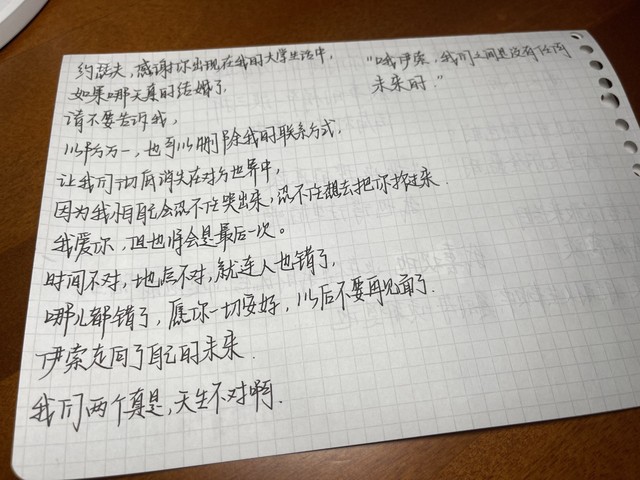 约瑟夫，感谢你出现在我的大学生活中，
如果哪天真的结婚了，
请不要告诉我，
以防万一，也可以删除我的联系方式，
让我们彻底消失在对方世界中，
因为我怕自己会忍不住哭出来，忍不住想去把你抢过来．
我爱你，但也将会是最后一次。
时间不对，地点不对，就连人也错了，
哪儿都错了，愿你一切安好，以后不要再见面了．
伊索走向了自己的未来．
我们两个真是，天生不对啊．
“哦伊索，我们之间是没有任何
未来的．”